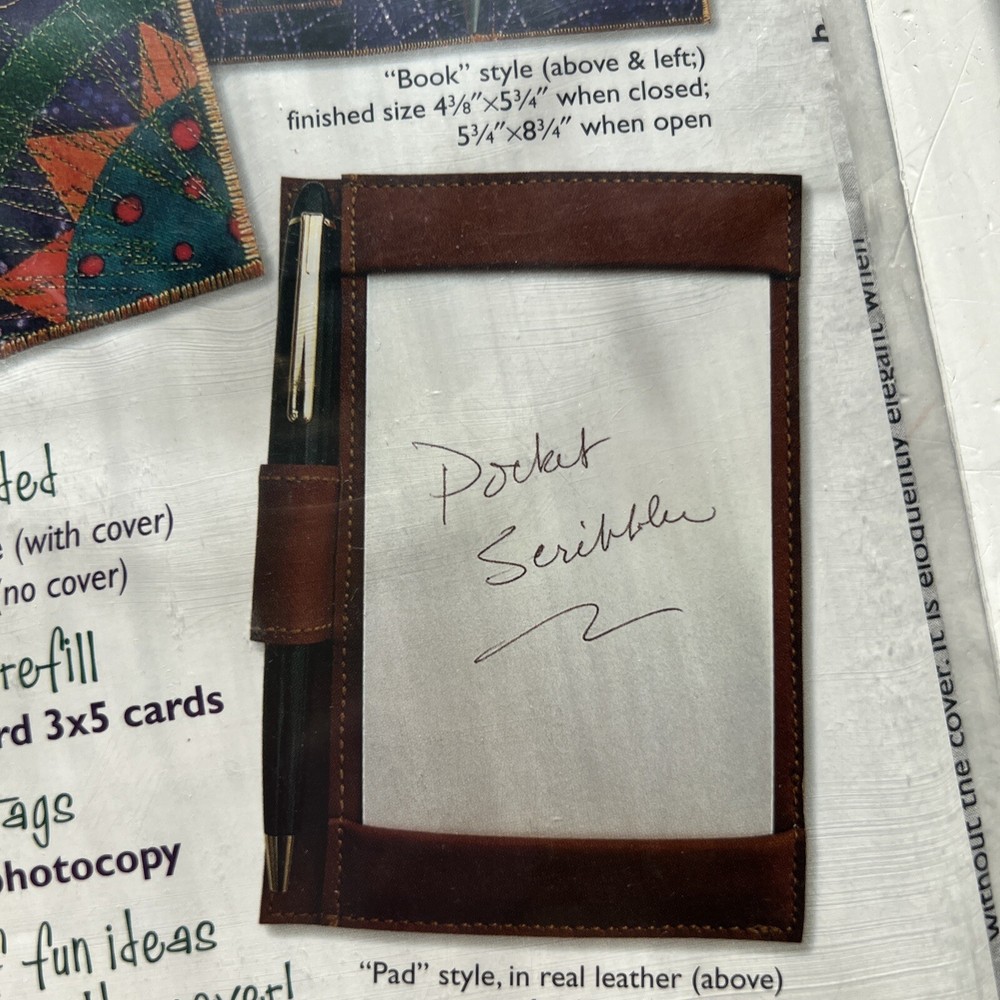 "Book" style (above & left;)
finished size 4⅜"×5¾" when closed;
5¾"×8¾" when open
Pocket
Scribbler
(with cover)
(no cover)
refill
3x5 cards
photocopy
fun ideas
"Pad" style, in real leather (above)
without the cover. It is eloquently elegant when